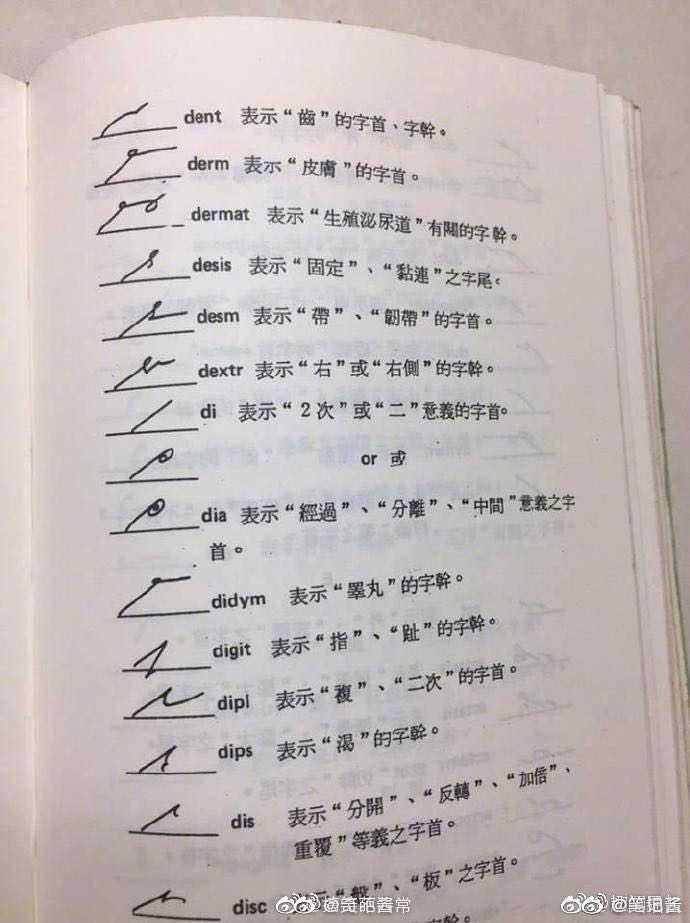 dent 表示“齒”的字首、字幹。
derm 表示“皮膚”的字首。
dermat 表示“生殖泌尿道”有關的字幹。
desis 表示“固定”、“黏連”之字尾。
desm 表示“帶”、“韌帶”的字首。
dextr 表示“右”或“右側”的字幹。
di 表示“2次”或“二”意義的字首。
or 或
dia 表示“經過”、“分離”、“中間”意義之字
首。
didym 表示“睪丸”的字幹。
digit 表示“指”、“趾”的字幹。
dipl 表示“複”、“二次”的字首。
dips 表示“渴”的字幹。
dis 表示“分開”、“反轉”、“加倍”、
重覆”等義之字首。
disc 表示“盤”、“板”之字首。
字幹。